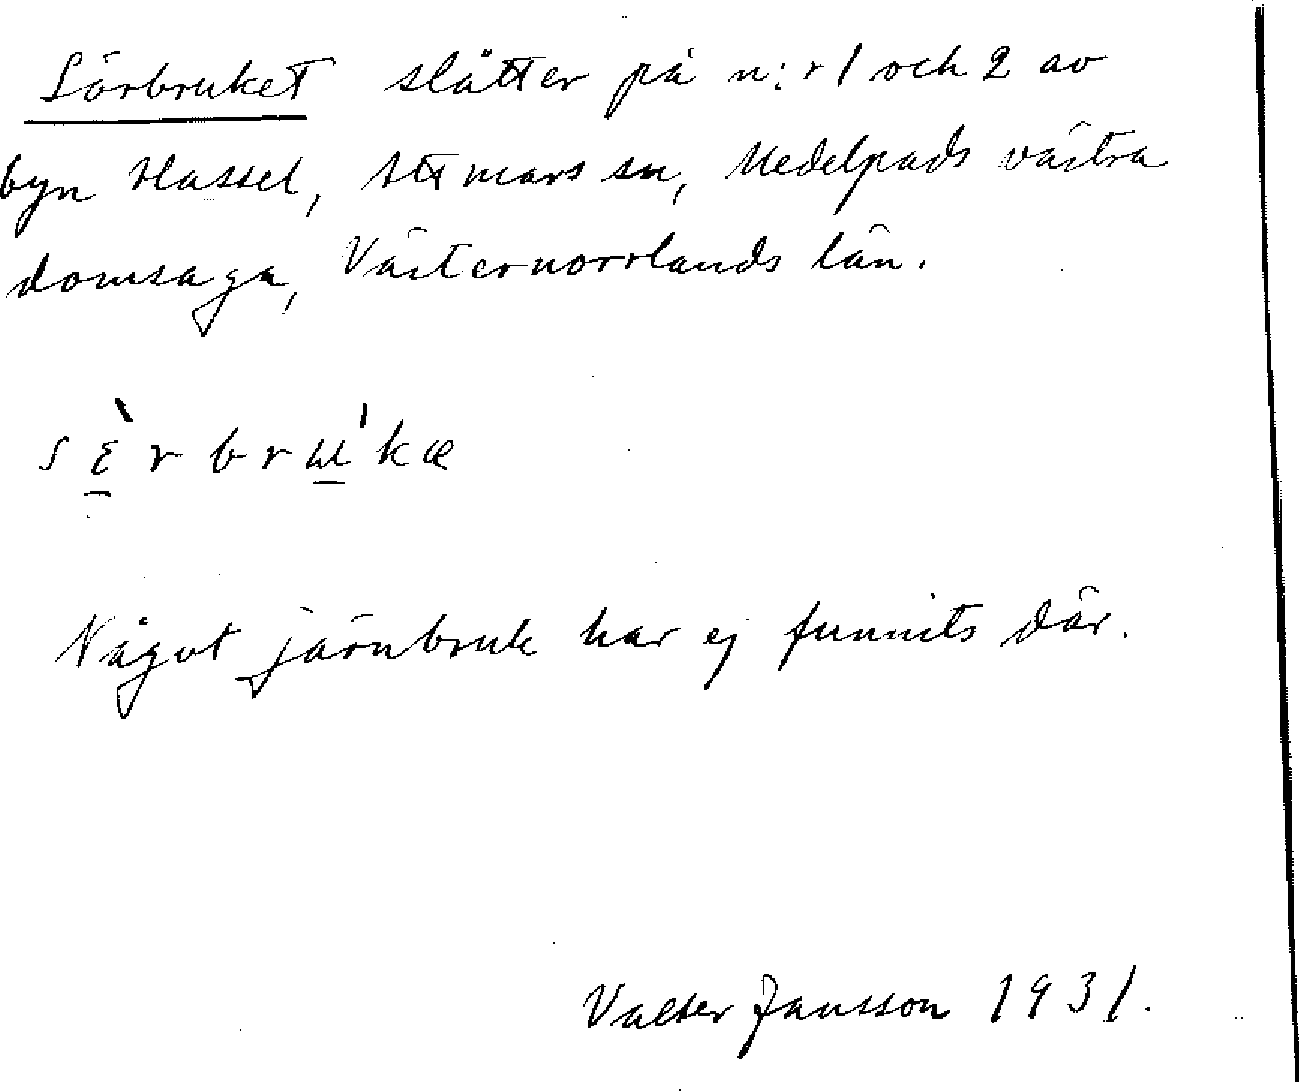 Sörbruket slåtter på n:r 1 och 2 av
byn Hassel, Attmars sn, Medelpads västra
domsaga, Västernorrlands län.
sɛ̀rbrɯ'kæ
Något järnbruk har ej funnits där.
Valter Jansson 1931.